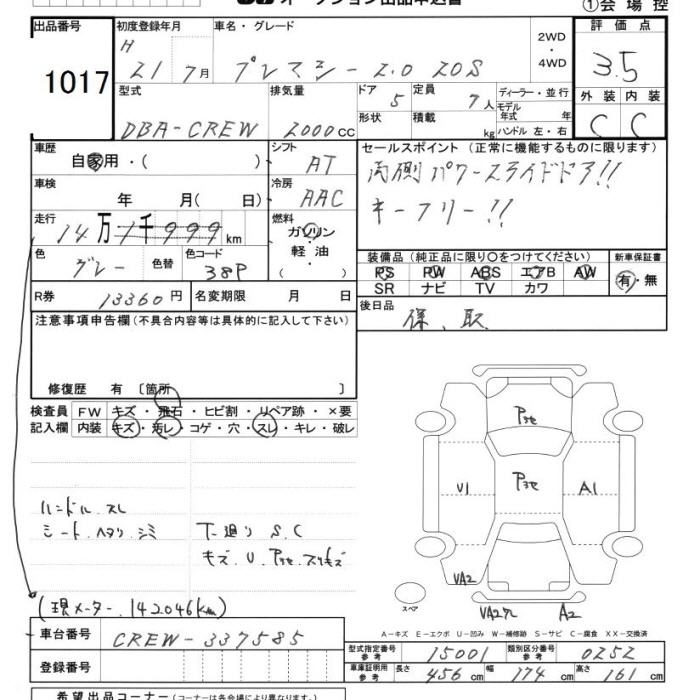 オークション出品申込書
①会場控
出品番号
1017
初度登録年月
H
21 7月
車名・グレード
プレマシー 2.0 20S
2WD
・
4WD
評価点
3.5
型式
DBA-CREW
排気量
2000cc
ドア
5
定員
7人
形状
積載
kg
ディーラー・並行
モデル年式 年
ハンドル 左・右
外装 内装
C C
車歴
自家用・( )
シフト
AT
セールスポイント (正常に機能するものに限ります)
両側パワースライドドア!!
キーフリー!!
車検
年 月( 日)
冷房
AAC
走行
14万1千999km
燃料
ガソリン
軽油
( )
色
グレー
色替
色コード
38P
装備品 (純正品に限り○をつけてください)
PS PW ABS エアB AW
SR ナビ TV カワ
新車保証書
有・無
R券
13360円
名変期限 月 日
後日品
保、取
注意事項申告欄 (不具合内容等は具体的に記入して下さい)
修復歴 有 〔箇所 〕
検査員
記入欄
FW キズ・飛石・ヒビ割・リペア跡・×要
内装 キズ・汚レ・コゲ・穴・スレ・キレ・破レ
ハンドル.スレ
シート.ヘタリ.シミ
下廻り S.C
U1
A1
VA2
A2
スペア
A-キズ E-エクボ U-凹み W-補修跡 S-サビ C-腐食 XX-交換済
(現メーター.142046km)
車台番号
CREW-337585
登録番号
型式指定番号
参考
15001
類別区分番号
参考
0252
車庫証明用
参考
長さ
456cm
幅
174cm
高さ
161cm
希望出品コーナー (コーナーは各会場により異なります。)